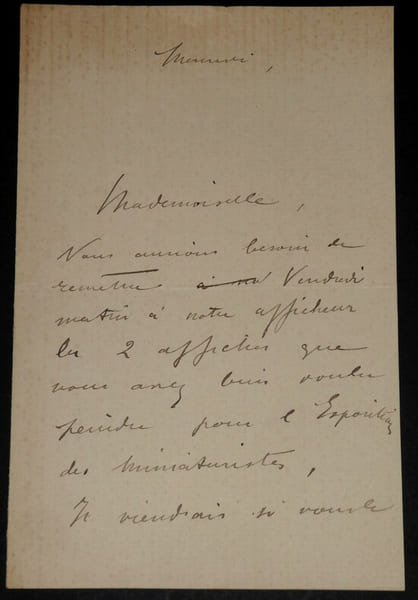 Mercredi,
Mademoiselle,
Nous aurions besoin de
remettre à no Vendredi
matin à notre afficheur
les 2 affiches que
vous avez bien voulu
peindre pour l'Exposition
des Miniaturistes,
Je viendrais si vous le